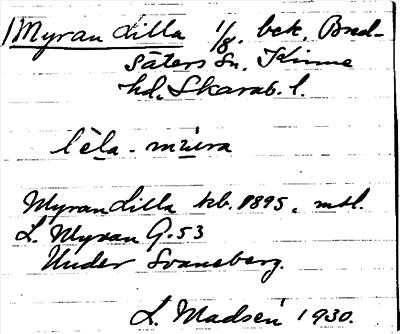 Myran Lilla 1/8. bek. Bred-
säters Sn. Kinne
hd. Skarab. l.
lila. müra
Myran Lilla kb. 1895, mtl.
L. Myran G. 53
Under Svaneberg.
L. Madsen 1930.